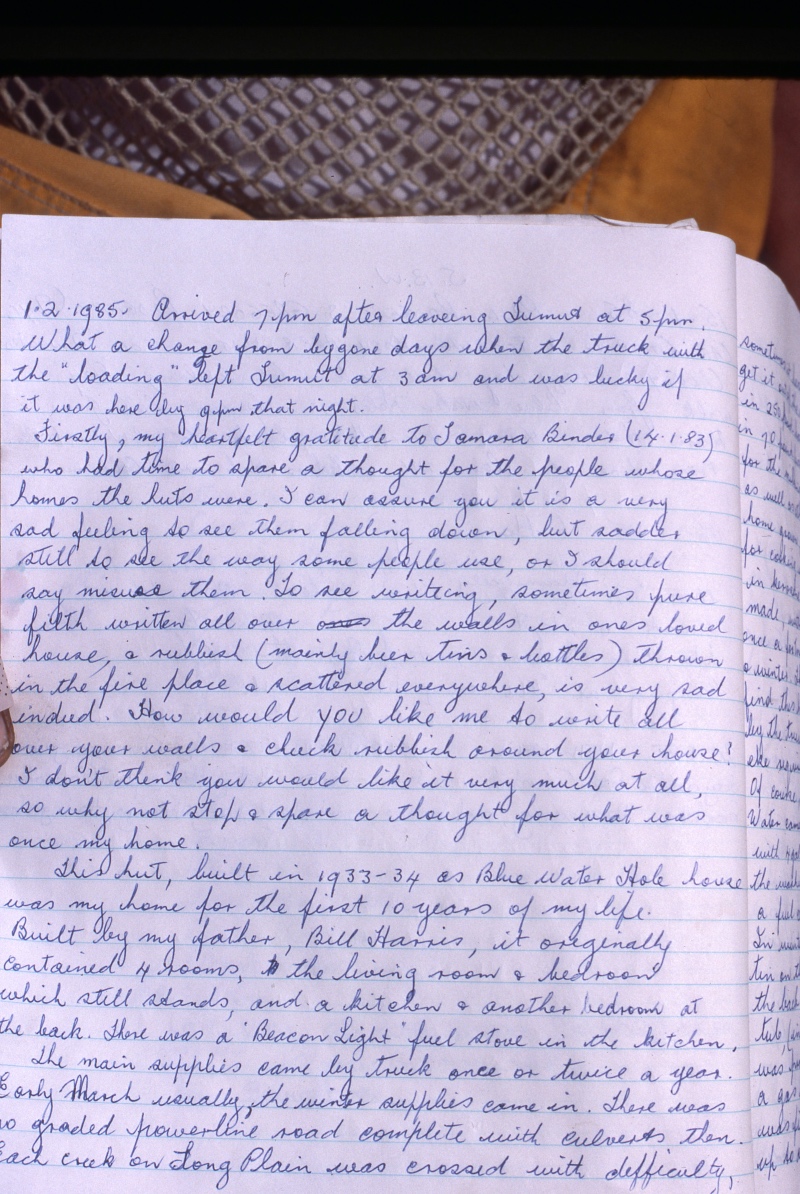 1.2.1985. Arrived 7pm after leaveing Tumut at 5pm.
What a change from bygone days when the truck with
the "loading" left Tumut at 3am and was lucky if
it was here by 9pm that night.
Firstly, my heartfelt gratitude to Tamara Binder (14.1.83)
who had time to spare a thought for the people whose
homes the huts were. I can assure you it is a very
sad feeling to see them falling down, but sadder
still to see the way some people use, or I should
say misuse them. To see writeing, sometimes pure
filth written all over ones the walls in ones loved
house, & rubbish (mainly beer tins & bottles) thrown
in the fire place & scattered everywhere, is very sad
indeed. How would you like me to write all
over your walls & chuck rubbish around your house?
I don't think you would like it very much at all,
so why not stop & spare a thought for what was
once my home.
This hut, built in 1933-34 as Blue Water Hole house
was my home for the first 10 years of my life.
Built by my father, Bill Harris, it originally
contained 4 rooms, the living room & bedroom
which still stands, and a kitchen & another bedroom at
the back. There was a 'Beacon Light' fuel stove in the kitchen.
The main supplies came by truck once or twice a year.
Early March usually, the winter supplies came in. There was
no graded powerline road complete with culverts then.
Each creek on Long Plain was crossed with difficulty,
get it
in
in
for the
as well as
home grown
for
in
made,
once a
winter.
find this
by the
eke
Of course
Water came
with
the
a fuel
In
tin on the
the back
tub,
was
a
was
up to